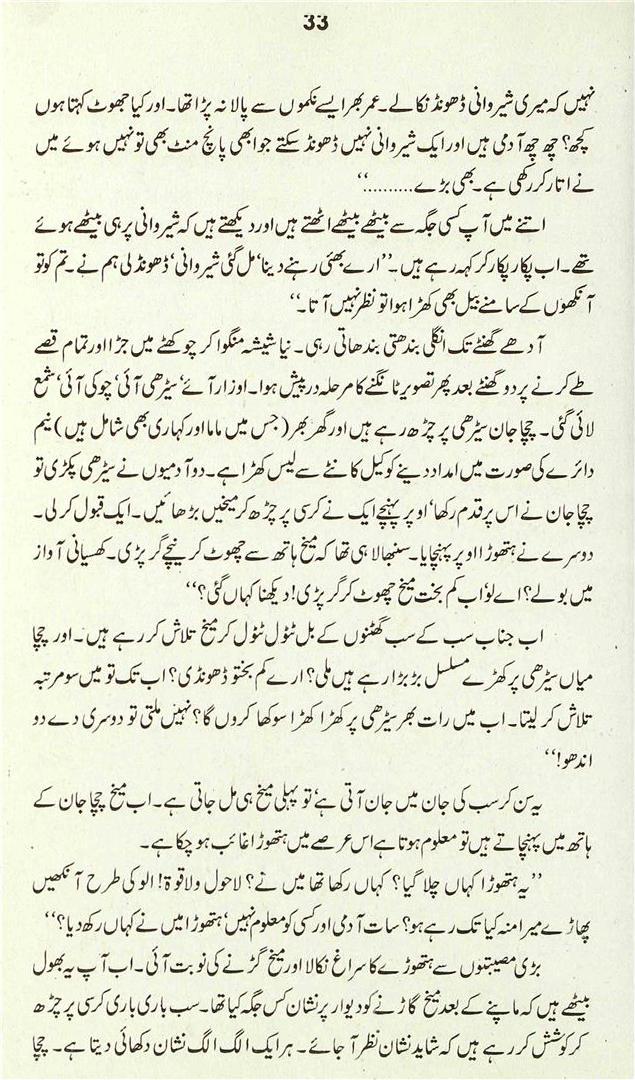 33
نہیں کہ میری شیروانی ڈھونڈ نکالے۔ عمر بھر ایسے نکموں سے پالا نہ پڑا تھا۔ اور کیا جھوٹ کہتا ہوں
کچھ؟ چھ چھ آدمی ہیں اور ایک شیروانی نہیں ڈھونڈ سکتے جو ابھی پانچ منٹ بھی تو نہیں ہوئے میں
نے اتار کر رکھی ہے۔ بھئی بڑے.........‘‘
اتنے میں آپ کسی جگہ سے بیٹھے بیٹھے اٹھتے ہیں اور دیکھتے ہیں کہ شیروانی پر ہی بیٹھے ہوئے
تھے۔ اب پکار پکار کر کہہ رہے ہیں۔ ’’ارے بھئی رہنے دینا‘ مل گئی شیروانی‘ ڈھونڈ لی ہم نے۔ تم کو تو
آنکھوں کے سامنے بیل بھی کھڑا ہوا تو نظر نہیں آتا۔‘‘
آدھے گھنٹے تک انگلی بندھتی بندھاتی رہی۔ نیا شیشہ منگوا کر چوکھٹے میں جڑا اور تمام قصے
طے کرنے پر دو گھنٹے بعد پھر تصویر ٹانگنے کا مرحلہ درپیش ہوا۔ اوزار آئے‘ سیڑھی آئی‘ چوکی آئی‘ شمع
لائی گئی۔ چچا جان سیڑھی پر چڑھ رہے ہیں اور گھر بھر (جس میں ماما اور کہاری بھی شامل ہیں) نیم
دائرے کی صورت میں امداد دینے کو کیل کانٹے سے لیس کھڑا ہے۔ دو آدمیوں نے سیڑھی پکڑی تو
چچا جان نے اس پر قدم رکھا‘ اوپر پہنچے ایک نے کرسی پر چڑھ کر میخیں بڑھائیں۔ ایک قبول کر لی۔
دوسرے نے ہتھوڑا اوپر پہنچایا۔ سنبھالا ہی تھا کہ میخ ہاتھ سے چھوٹ کر نیچے گر پڑی۔ کھسیانی آواز
میں بولے؟ اے لو‘ اب کم بخت میخ چھوٹ کر گر پڑی! دیکھنا کہاں گئی؟‘‘
اب جناب سب کے سب گھٹنوں کے بل ٹٹول ٹٹول کر میخ تلاش کر رہے ہیں۔ اور چچا
میاں سیڑھی پر کھڑے مسلسل بڑبڑا رہے ہیں ملی؟ ارے کم بختو ڈھونڈی؟ اب تک تو میں سو مرتبہ
تلاش کر لیتا۔ اب میں رات بھر سیڑھی پر کھڑا کھڑا سوکھا کروں گا؟ نہیں ملتی تو دوسری دے دو
اندھو!‘‘
یہ سن کر سب کی جان میں جان آتی ہے‘ تو پہلی میخ ہی مل جاتی ہے۔ اب میخ چچا جان کے
ہاتھ میں پہنچاتے ہیں تو معلوم ہوتا ہے اس عرصے میں ہتھوڑا غائب ہو چکا ہے۔
’’یہ ہتھوڑا کہاں چلا گیا؟ کہاں رکھا تھا میں نے؟ لاحول ولا قوۃ! الو کی طرح آنکھیں
پھاڑے میرا منہ کیا تک رہے ہو؟ سات آدمی اور کسی کو معلوم نہیں‘ ہتھوڑا میں نے کہاں رکھ دیا؟‘‘
بڑی مصیبتوں سے ہتھوڑے کا سراغ نکالا اور میخ گڑنے کی نوبت آئی۔ اب آپ یہ بھول
بیٹھے ہیں کہ ماپنے کے بعد میخ گاڑنے کو دیوار پر نشان کس جگہ کیا تھا۔ سب باری باری کرسی پر چڑھ
کر کوشش کر رہے ہیں کہ شاید نشان نظر آ جائے۔ ہر ایک الگ الگ نشان دکھائی دیتا ہے۔ چچا